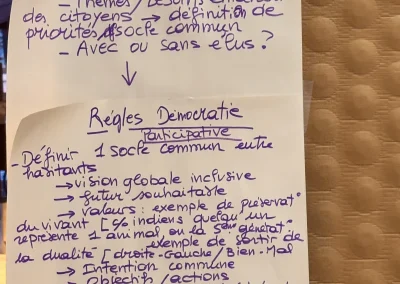 - Thèmes / Besoins
des citoyens → définition de
priorités / socle commun
- Avec ou sans élus ?
↓
Règles Démocratie
Participative
- Définir 1 socle commun entre
habitants
→ vision globale inclusive
→ futur souhaitable
→ valeurs : exemple de préservat°
du vivant [c/o indiens quelqu'un
représente 1 animal ou la 5ème générat°
exemple de sortir de
la dualité [droite-Gauche/Bien-Mal
→ Intention commune
→ Objectifs / actions